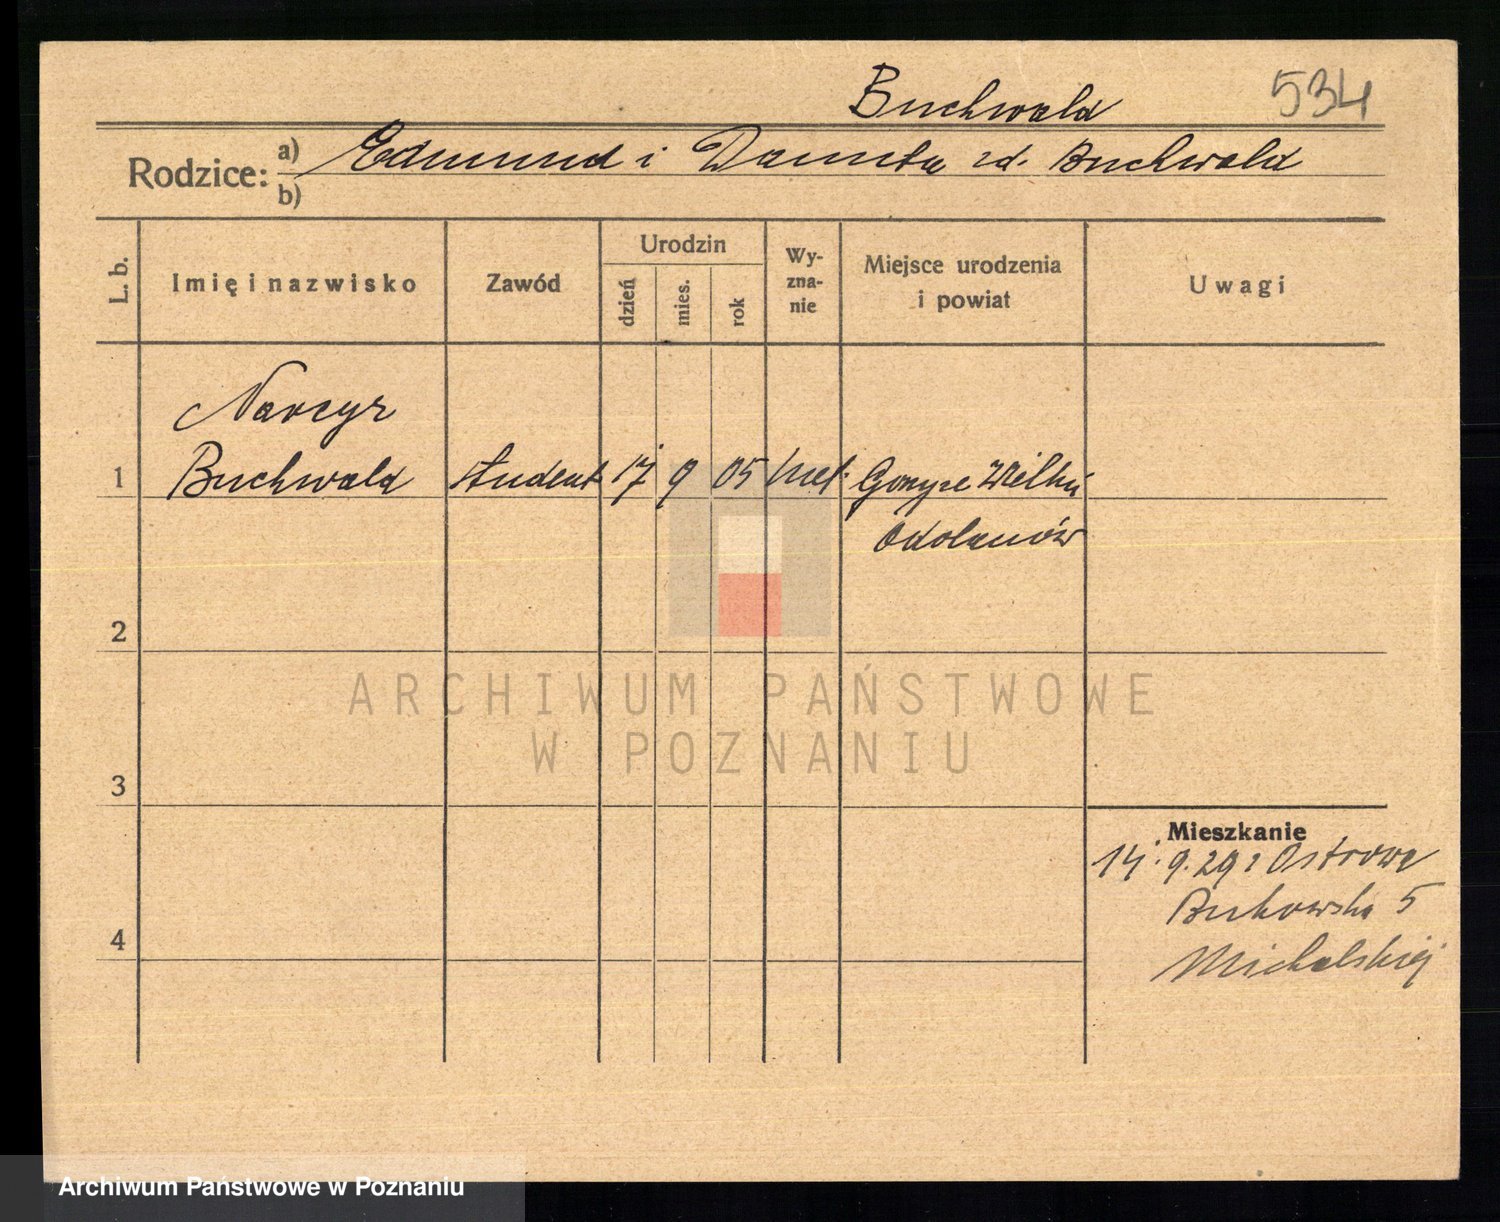 Buchwald 534
Rodzice: a) Edmund i Danuta zd. Buchwald
b)
L. b. Imię i nazwisko Zawód Urodzin dzień mies. rok Wy-zna-nie Miejsce urodzenia i powiat Uwagi
Narcyz
1 Buchwald student 17 9 05 Wielki
Odolanów
2
ARCHIWUM PAŃSTWOWE
W POZNANIU
3
Mieszkanie
14. 9. 29 z Ostrowa
Bukowska 5
4 Michalskiej
Archiwum Państwowe w Poznaniu